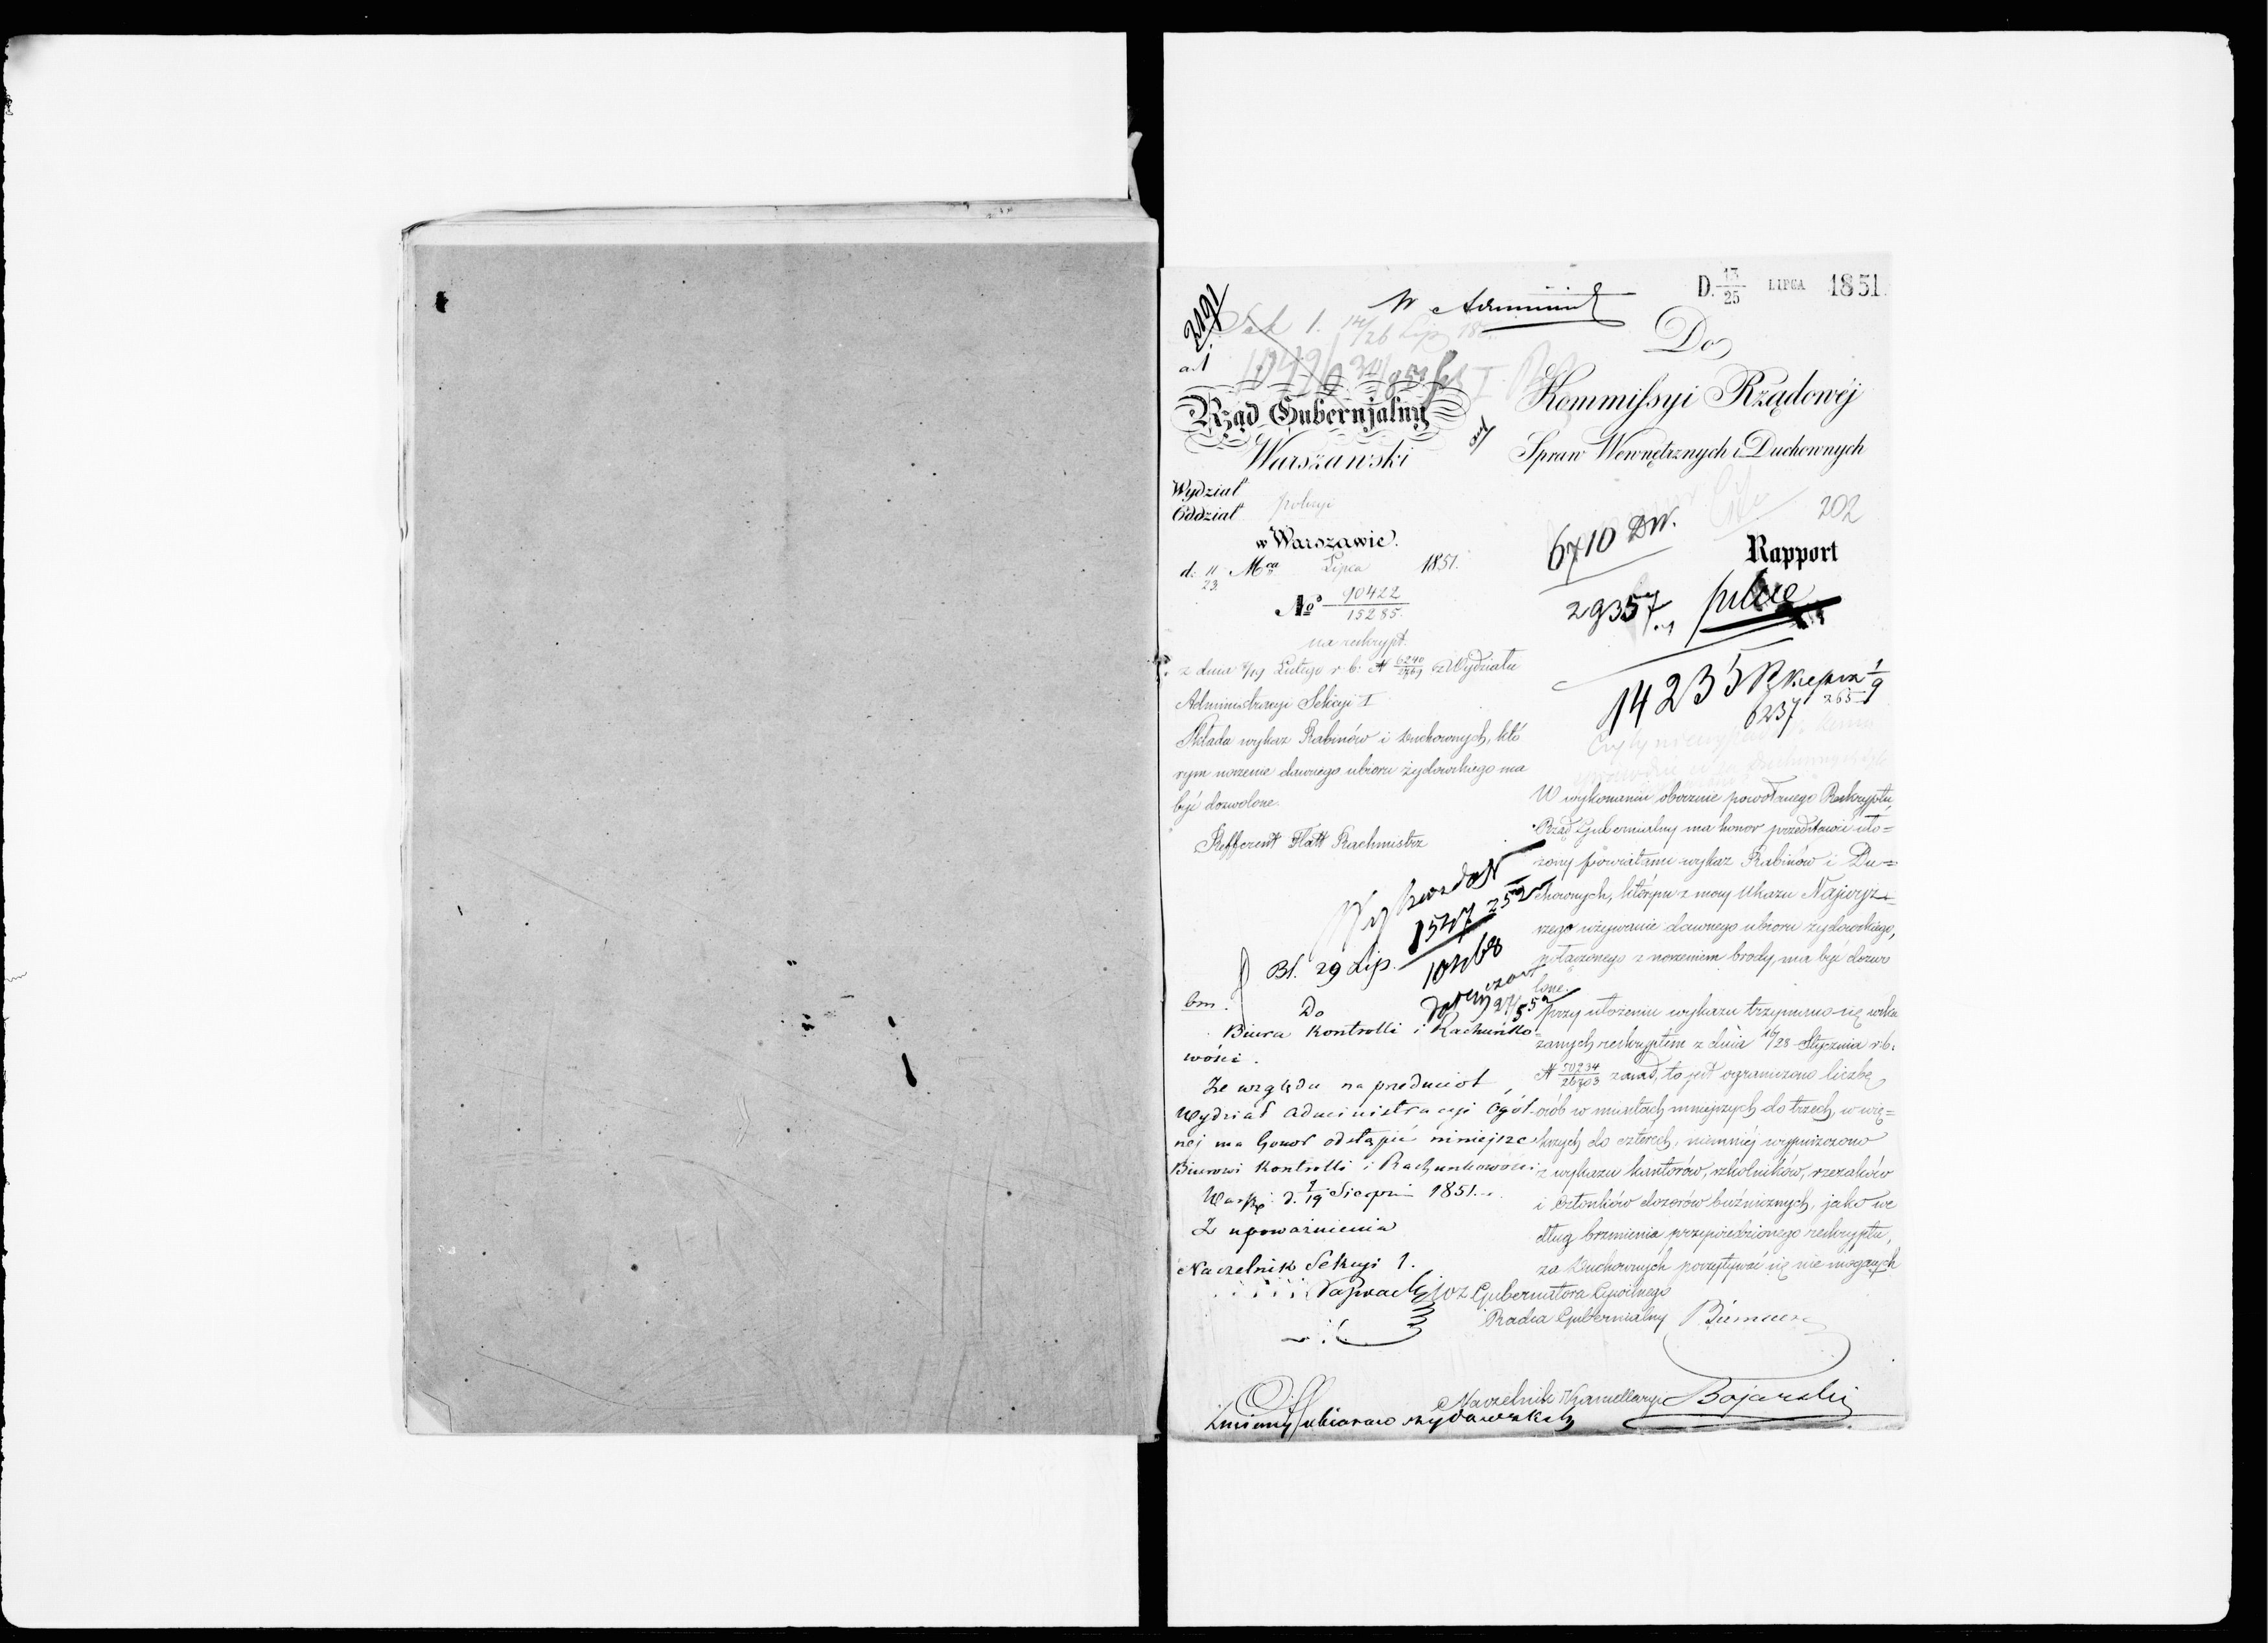 D. 13/25 LIPCA 1851.
W Administ
2191
Sek 1. 14/26 Lip
ad
Do
Rząd Gubernjalny
Warszawski
Kommissyi Rządowéj
Spraw Wewnętrznych i Duchownych
Wydział
Oddział policyi
w Warszawie.
d: 11/23 Mca Lipca 1851.
No 90422/15285.
202
6710 DW.
Rapport
29357
14235
6237
na reskrypt
z dnia 7/19 Lutego r. b: N 6240/2761 z Wydziału
Administracyi Sekcyi I
Składa wykaz Rabinów i Duchownych, któ
rym noszenie dawnego ubioru żydowskiego ma
być dozwolone.
Refferent Flatt Rachmistrz
W wykonaniu obocznie powołanego Reskryptu,
Rząd Gubernialny ma honor przedstawić uło=
żony powiatami wykaz Rabinów i Du=
chownych, którym z mocy Ukazu Najwyż=
szego używanie dawnego ubioru żydowskiego,
połączonego z noszeniem brody, ma być dozwo
lone.
Przy ułożeniu wykazu trzymano się wska
zanych reskryptem z dnia 16/28 Stycznia r. b.
N 50234/26703 zasad, to jest ograniczono liczbę
osób w miastach mniejszych do trzech, w wię=
kszych do czterech, niemniej wypuszczono
z wykazu kantorów, szkolników, rzezaków
i Członków dozorów bużnicznych, jako we
dług brzmienia przywiedzionego reskryptu,
za Duchownych poczytywać się nie mogących
wz Gubernatora Cywilnego
Radca Gubernialny
Naczelnik Kancellaryi Bojarski
Bl. 29 Lip.
bm.
Do
Biura Kontrolli i Rachunko
wości.
Ze względu na przedmiot,
Wydział Administracyi Ogól
nej ma honor odstąpić niniejsze
Biurowi Kontrolli i Rachunkowości
Warsz. d. 7/19 Sierpnia 1851.
Z upoważnienia
Naczelnik Sekcyi 1.
Zmiany ubiorów żydowskich